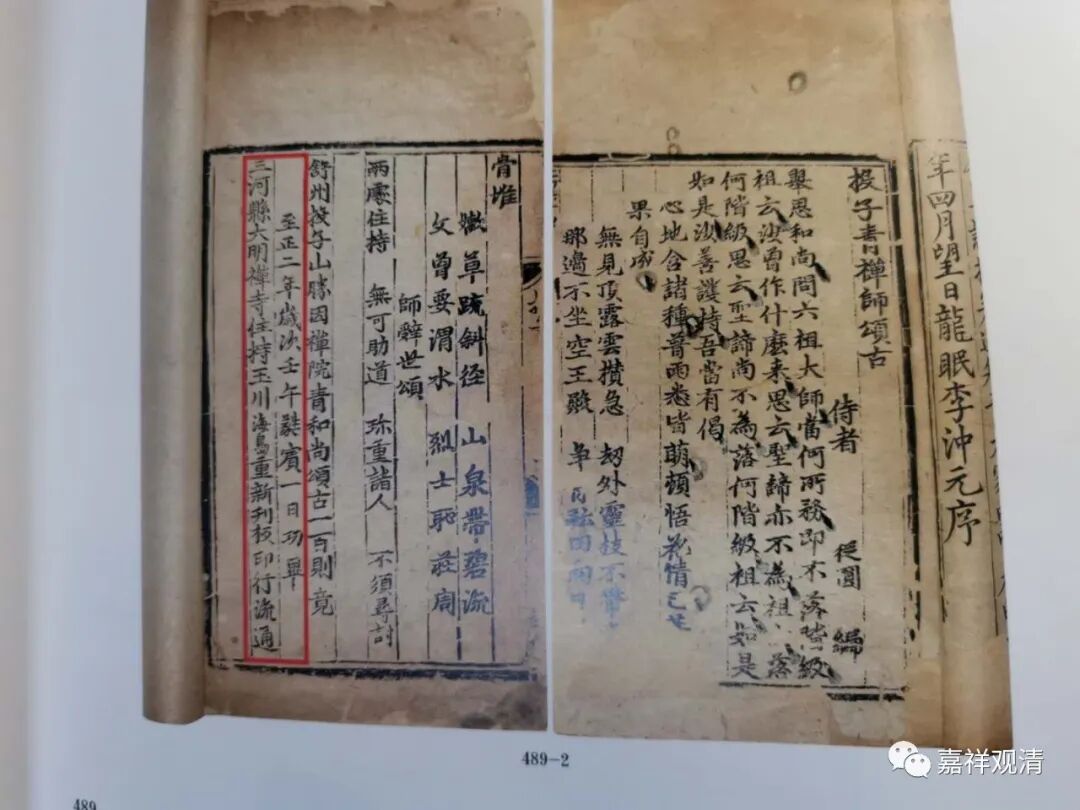 年四月望日龍眠李沖元序
投子青禪師頌古
侍者 從圓 編
舉思和尚問六祖大師當何所務即不落階級
祖云汝曾作什麼来思云聖諦亦不為祖 落
何階級思云聖諦尚不為落何階級祖云如是
如是汝善護持吾當有偈
心地含諸種普雨悉皆萌頓悟花情已
果自成
無見頂露雲攢急 劫外靈枝不
那邊不坐空王殿 争 田向日
骨堆
嫩草踈斜径 山泉帶碧流
父曾耍渭水 烈士耻莊周
師辭世頌
兩處住持 無可助道 珎重諸人 不須尋討
舒州投子山勝因禪院青和尚頌古一百則竟
至正二年歲次壬午蕤賓一日功畢
三河縣大明禪寺住持玉川海島重新刊板印行流通
489-2
489
嘉祥观清